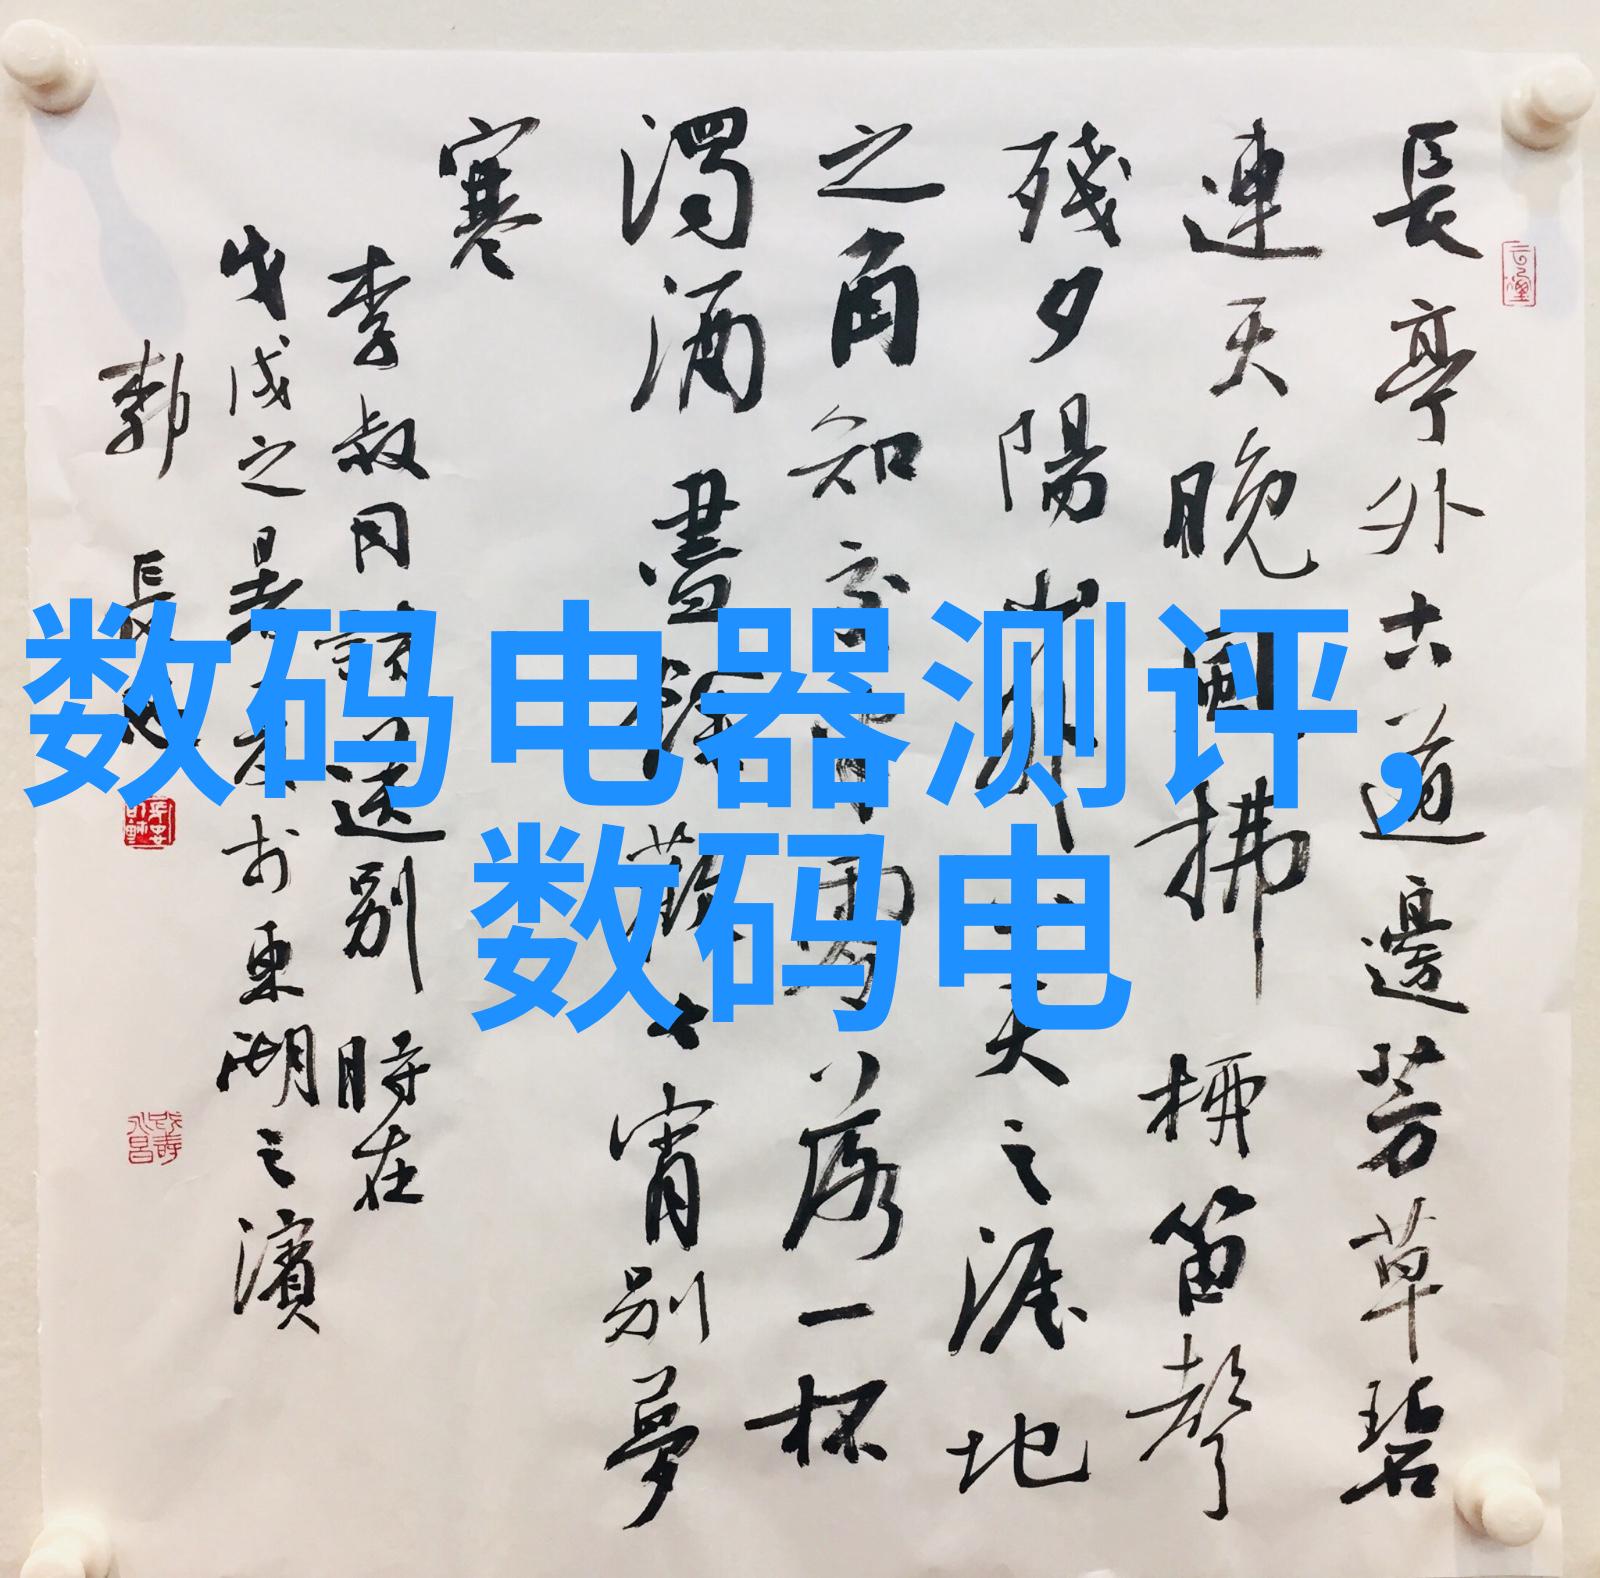 長亭外古道邊芳草碧
連天晚風拂柳笛聲
殘夕陽山外山天之涯地
之角知交半零落一杯
濁酒盡餘歡今宵別夢
寒
李叔同詞送别 時在
戊戌之於東湖之濱
長
数码电器测评，
数码电